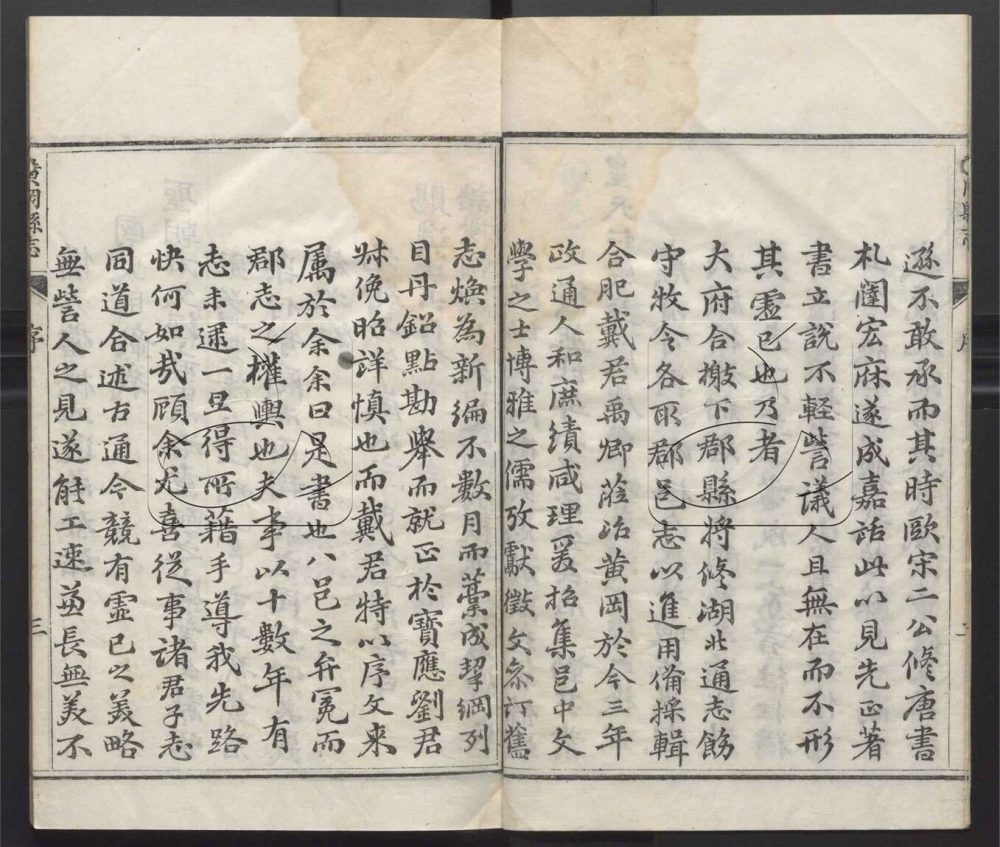 遜不敢承而其時歐宋二公修唐書
札闥宏庥遂成嘉話此以見先正著
書立說不輕訾議人且無在而不形
其虛己也乃者
大府合檄下郡縣將修湖北通志飭
守牧令各取郡邑志以進用備採輯
合肥戴君禹卿蒞治黃岡於今三年
政通人和庶績咸理爰招集邑中文
學之士博雅之儒攷獻徵文叅訂舊
志煥為新編不數月而藁成挈綱列
目丹鉛點勘舉而就正於寶應劉君
叔俛昭詳慎也而戴君特以序文来
属於余余曰是書也八邑之弁冕而
郡志之權輿也夫事以十數年有
志未逮一旦得所藉手導我先路
快何如㢤顧余尤喜從事諸君子志
同道合述古通今競有虛己之美略
無訾人之見遂能工速並長無美不
黃岡縣志
序
三